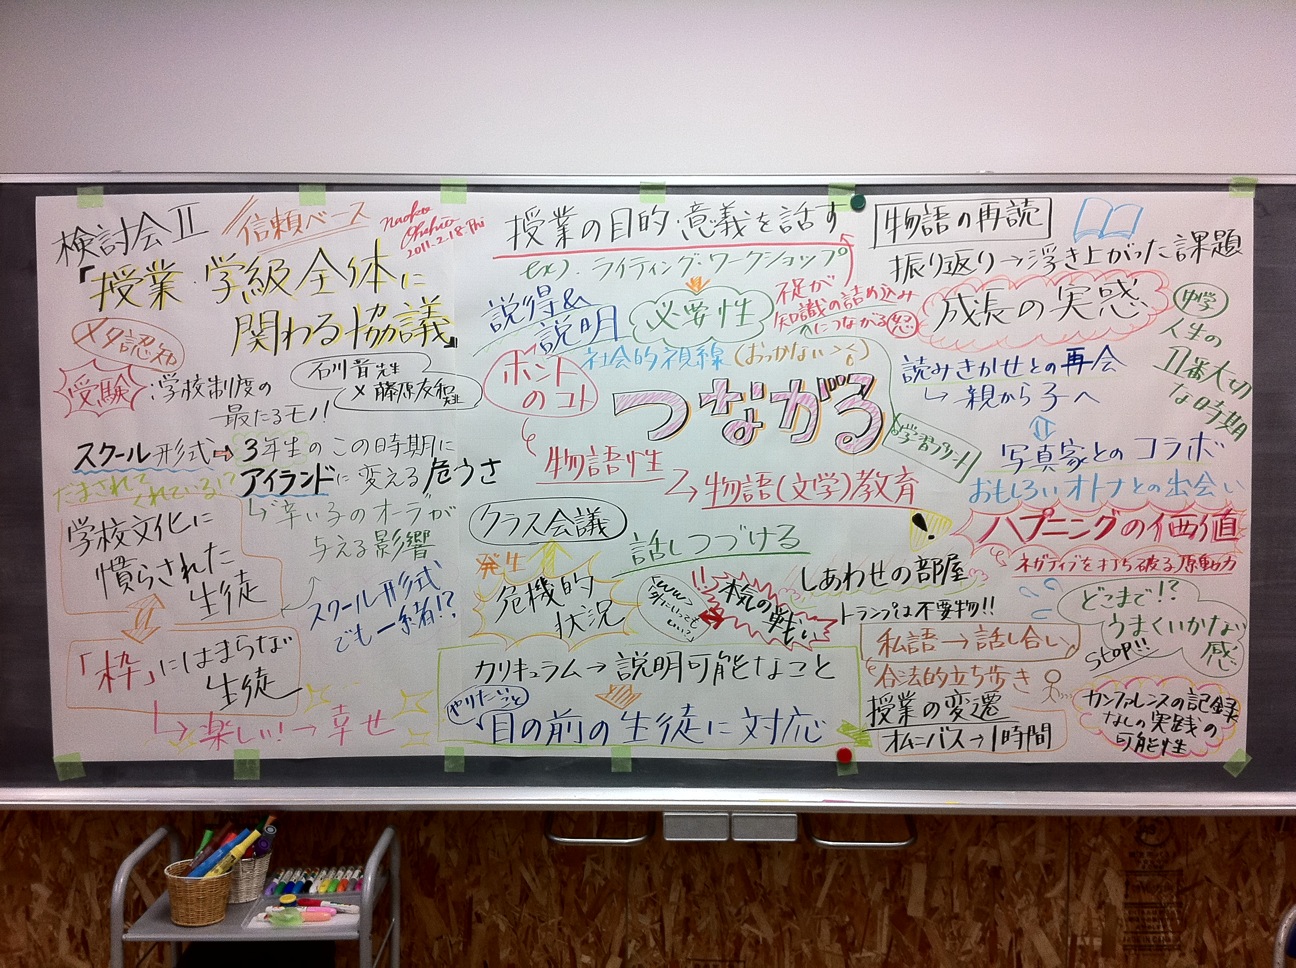 検討会Ⅱ
信頼ベース
2011.2.18.Fri
「授業・学級全体に
関わる協議」
メタ認知
石川晋先生
×藤原友和先生
受験:学校制度の
最たるモノ!
スクール形式⇨3年生のこの時期に
アイランドに変える危うさ
だまされて
くれている!?
↳辛い子のオーラが
与える影響
学校文化に
慣らされた
生徒
スクール形式
でも一緒!?
「枠」にはまらない
生徒
↳楽しい!→幸せ
授業の目的・意義を話す
ex). ライティング・ワークショップ
説得&
説明
必要性
不足が
知識の詰め込み
につながる
社会的視線(おっかない><)
ホント
のコト
つながる
学習プリント
物語性
→物語(文学)教育
クラス会議
話しつづける
発生
危機的
状況
本気の戦い
しあわせの部屋
トランプは不要物!!
カリキュラム→説明可能なこと
やりたいこと
目の前の生徒に対応
私語→話し合い
合法的立ち歩き
授業の変遷
オムニバス→1時間
物語の再読
振り返り→浮き上がった課題
成長の実感
中学
人生の
1番大切
な時期
読みきかせとの再会
↳親から子へ
写真家とのコラボ
おもしろいオトナとの出会い
ハプニングの価値
ネガティブを打ち破る原動力
どこまで!?
うまくいかない
感
STOP!!
カンファレンスの記録
なしの実践の
可能性